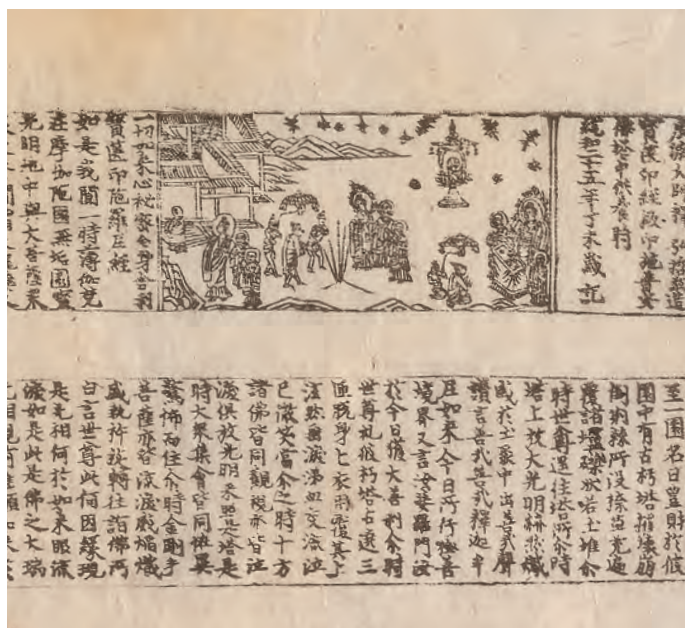 廣濟大師釋弘哲敬造
寶篋印經板印施普安
佛塔中供養時
統和二十五年丁未歲記
一切如來心秘密全身舍利
寶篋印陀羅尼經
如是我聞一時薄伽梵
在摩伽陀國無垢園寶
光明池中與大菩薩眾
至一園名曰豐財於彼
園中有古朽塔摧壞崩
倒荊棘所沒榛草充遍
覆諸礫狀若土堆尒
時世尊逕往塔所尒時
塔上放大光明赫然熾
盛於土聚中出善哉聲
讚言善哉善哉釋迦牟
尼如來今日所行極善
境界又言汝婆羅門汝
於今日獲大善利尒時
世尊礼彼朽塔右遶三
匝脫身上衣用覆其上
泫然垂淚涕血交流泣
已微笑當尒之時十方
諸佛皆同觀視亦皆泣
淚俱放光明來照是塔是
時大眾集會皆同怪異
驚怖而住尒時金剛手
菩薩亦皆流淚威焰熾
盛執杵旋轉往詣佛所
白言世尊此何因緣現
是光相何於如來眼流
淚如是此是佛之大瑞
光相現前唯願如來